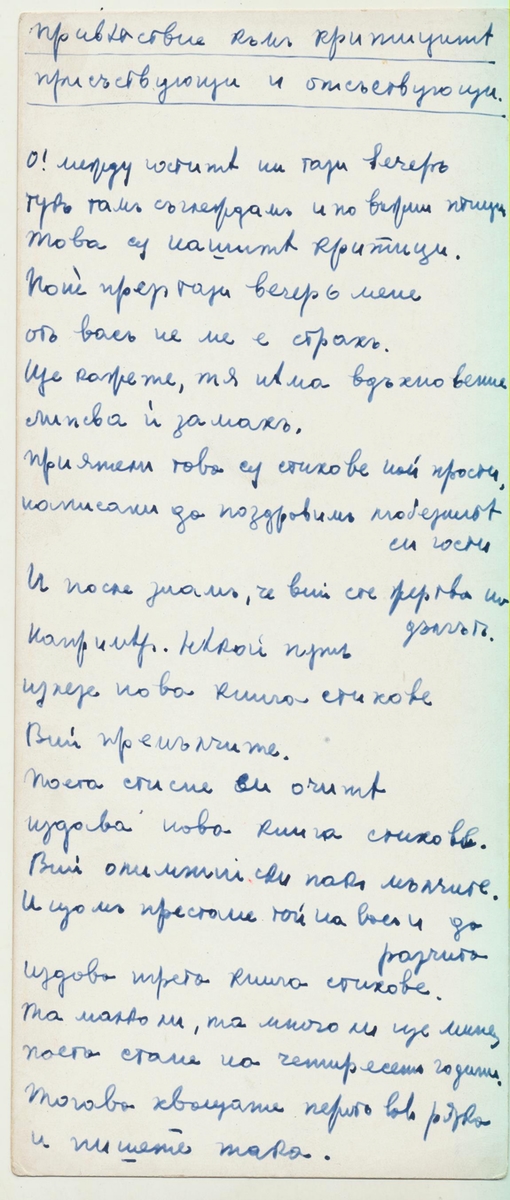 привѣтствие къмъ критицитѣ
присъствующи и отсъствующи.
О! между гоститѣ ни тази вечерь
тукъ тамъ съглеждамъ и по външи птици
това су нашитѣ критици.
Но ѝ през тази вечерь мене
отъ васъ не ме е страхъ.
Ще кажете, тя нѣма вдъхновение
липсва ѝ замахъ.
приятели това су стихове най прости,
написани да поздравимъ любезнитѣ
си гости
И после знамъ, че вий сте жертва на
дългъть.
напримѣр. нѣкой пъть
излезе нова книга стихове
Вий премълчите.
поета стисне си очитѣ
издава нова книга стихове.
Вий олимпийски пакъ мълчите.
И щомъ престане той на васъ и да
разчита
издава трета книга стихове.
та малко ли, та много ли ще минеш
поета стане на четиресеть години.
тогава хващате перото въвъ рѫка
и пишете така.